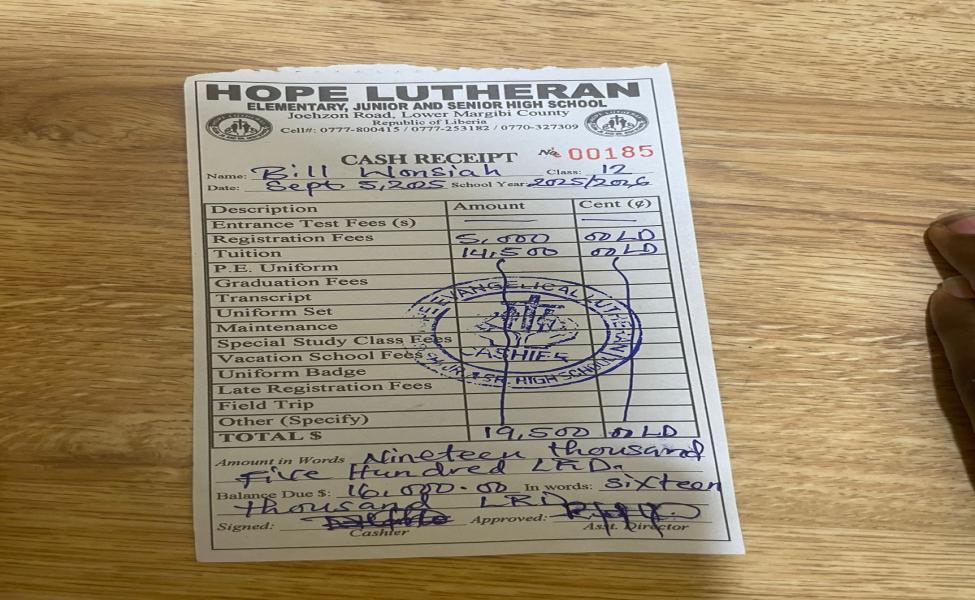 HOPE LUTHERAN
ELEMENTARY, JUNIOR AND SENIOR HIGH SCHOOL
Joehzon Road, Lower Margibi County
Republic of Liberia
Cell#: 0777-800415 / 0777-253182 / 0770-327309
CASH RECEIPT No 00185
Name: Bill Wonsiah Class: 12
Date: Sept 5, 2025 School Year: 2025/2026
Description Amount Cent (¢)
Entrance Test Fees (s)
Registration Fees 5,000 00 LD
Tuition 14,500 00 LD
P.E. Uniform
Graduation Fees
Transcript
Uniform Set
Maintenance
Special Study Class Fees
Vacation School Fees
Uniform Badge
Late Registration Fees
Field Trip
Other (Specify)
TOTAL $ 19,500 00 LD
EVANGELICAL LUTHERAN
CASHIER
JR & SR. HIGH SCHOOL
Amount in Words Nineteen thousand
Five Hundred LRD.
Balance Due $: 16,000.00 In words: Sixteen
thousand LRD
Signed: Approved:
Cashier Asst. Director